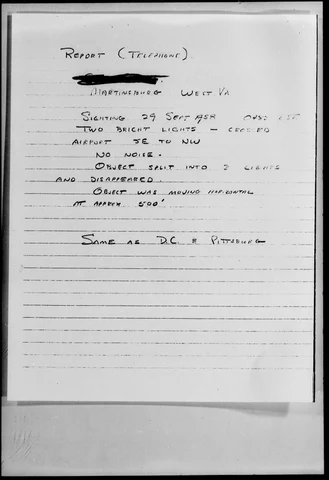 REPORT (TELEPHONE)
MARTINSBURG WEST VA
SIGHTING 29 SEPT 1958 EST
TWO BRIGHT LIGHTS - CROSSED
AIRPORT SE TO NW
NO NOISE.
OBJECT SPLIT INTO LIGHTS
AND DISAPPEARED.
OBJECT WAS MOVING HORIZONTAL
AT APPROX. 500'
SAME AS D.C. & PITTSBURG